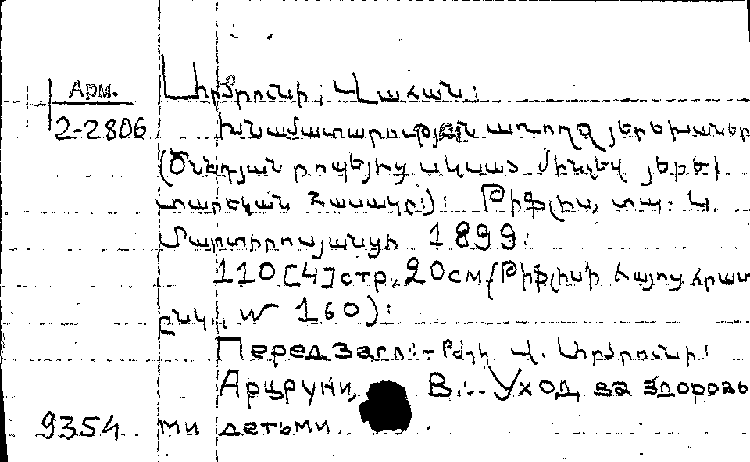 Арм.
2-2806
Արծրունի, Վահան:
Խնամատարություն առողջ յերեխաներ
(Ծննդյան րոպեյից սկսած մինչեվ յերեք
տարեկան հասակը): Թիֆլիս, տպ. Մ.
Մարտիրոսյանցի 1899:
110 [4] стр. 20см (Թիֆլիսի հայոց հրատ
ընկ., № 160):
Перед загл.: Բժիշկ Վ. Արծրունի:
Арцруни, В. Уход за здоровы
ми детьми.
9354